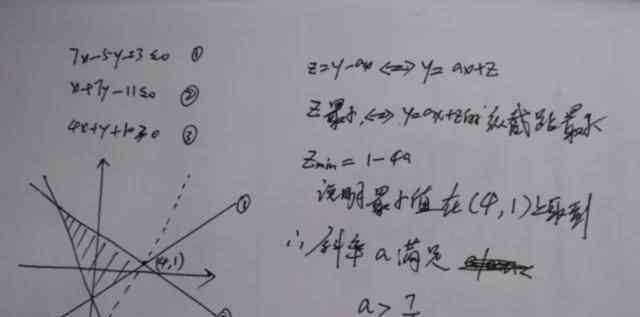 7x-5y-23≤0 ①
x+7y-11≤0 ②
4x+y+10≥0 ③
①
(4,1)
②
z=y-ax⟺y=ax+z
z最小⟺y=ax+z的纵截距最小
Zmin=1-4a
说明最小值在(4,1)上取到
∴斜率a满足
a>7